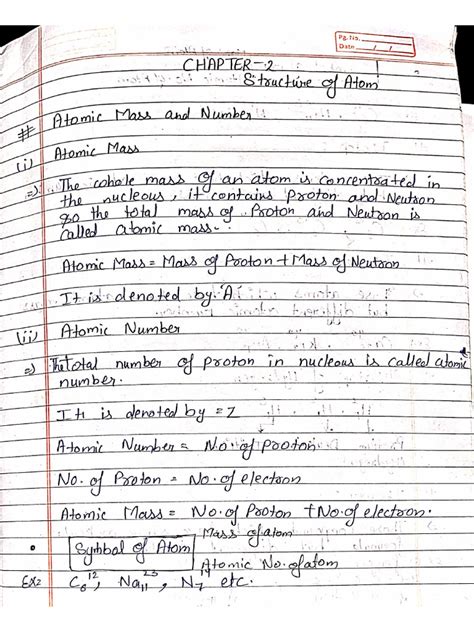 Pg. No.
Date / /
CHAPTER-2
Structure of Atom
# Atomic Mass and Number
(i) Atomic Mass
=> The cohole mass of an atom is concentrated in
the nucleous, it contains Proton and Neutron
so the total mass of Proton and Neutron is
called atomic mass.
Atomic Mass = Mass of Proton + Mass of Neutron
It is denoted by 'A'
(ii) Atomic Number
=> The total number of Proton in nucleous is called atomic
number.
It is denoted by = Z
Atomic Number = No. of Proton.
No. of Proton = No. of electron
Atomic Mass = No. of Proton + No. of electron.
Symbal of Atom Mass of atom
Atomic No. of atom
Ex: C₆¹², Na₁₁²³, N₇¹⁴ etc.